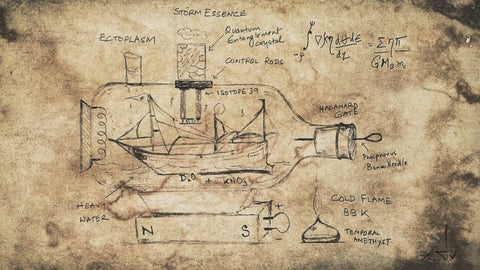 STORM ESSENCE
Quantum
Entanglement
crystal
ECTOPLASM
CONTROL RODS
ISOTOPE 39
HADAMARD
GATE
Phosphorus
Bone Needle
D₂O + KNO₃
HEAVY
WATER
COLD FLAME
89 K
N S
+
-
TEMPORAL
AMETHYST